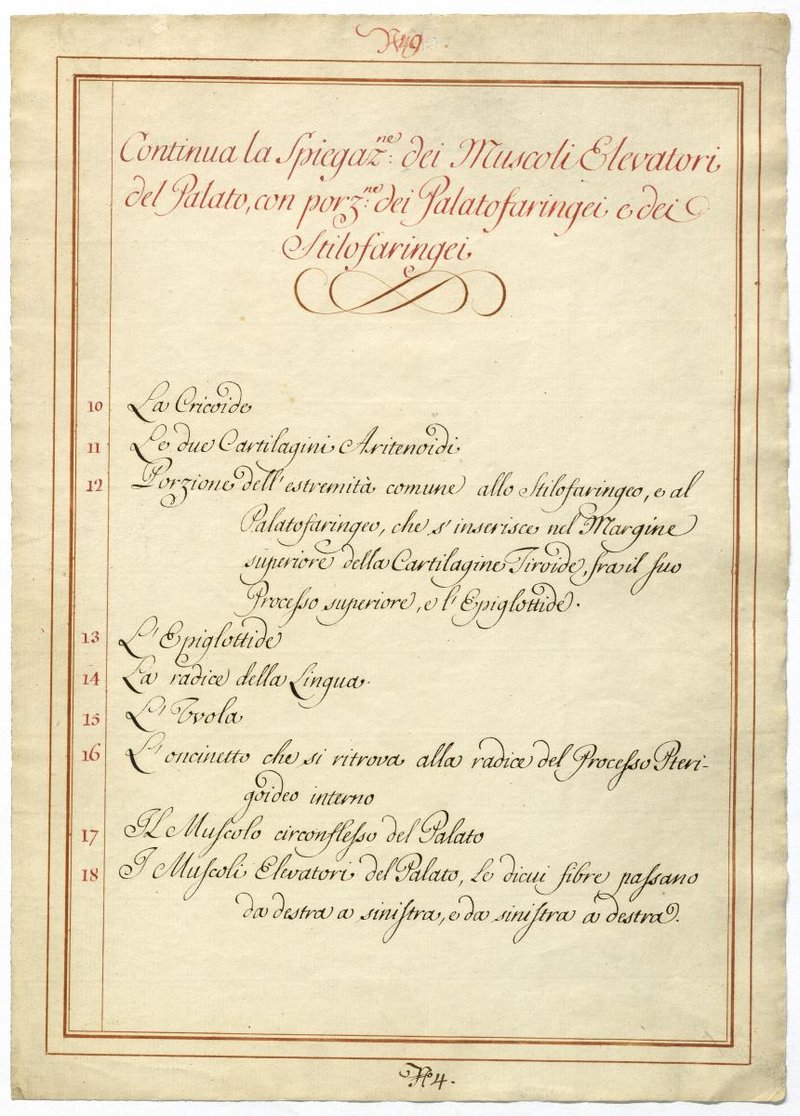 Nº 9
Continua la Spiegaz.ne dei Muscoli Elevatori
del Palato, con porz.ne dei Palatofaringei e dei
Stilofaringei
10 La Cricoide
11 Le due Cartilagini Aritenoidi
12 Porzione dell'estremità comune allo Stilofaringeo, e al
Palatofaringeo, che s'inserisce nel Margine
superiore della Cartilagine Tiroide, fra il suo
Processo superiore, e l'Epiglottide.
13 L'Epiglottide
14 La radice della Lingua.
15 L'Uvola
16 L'oncinetto che si ritrova alla radice del Processo Pteri-
goideo interno
17 IL Muscolo circonflesso del Palato
18 I Muscoli Elevatori del Palato, le dicui fibre passano
da destra a sinistra, e da sinistra a destra.
Nº 4.